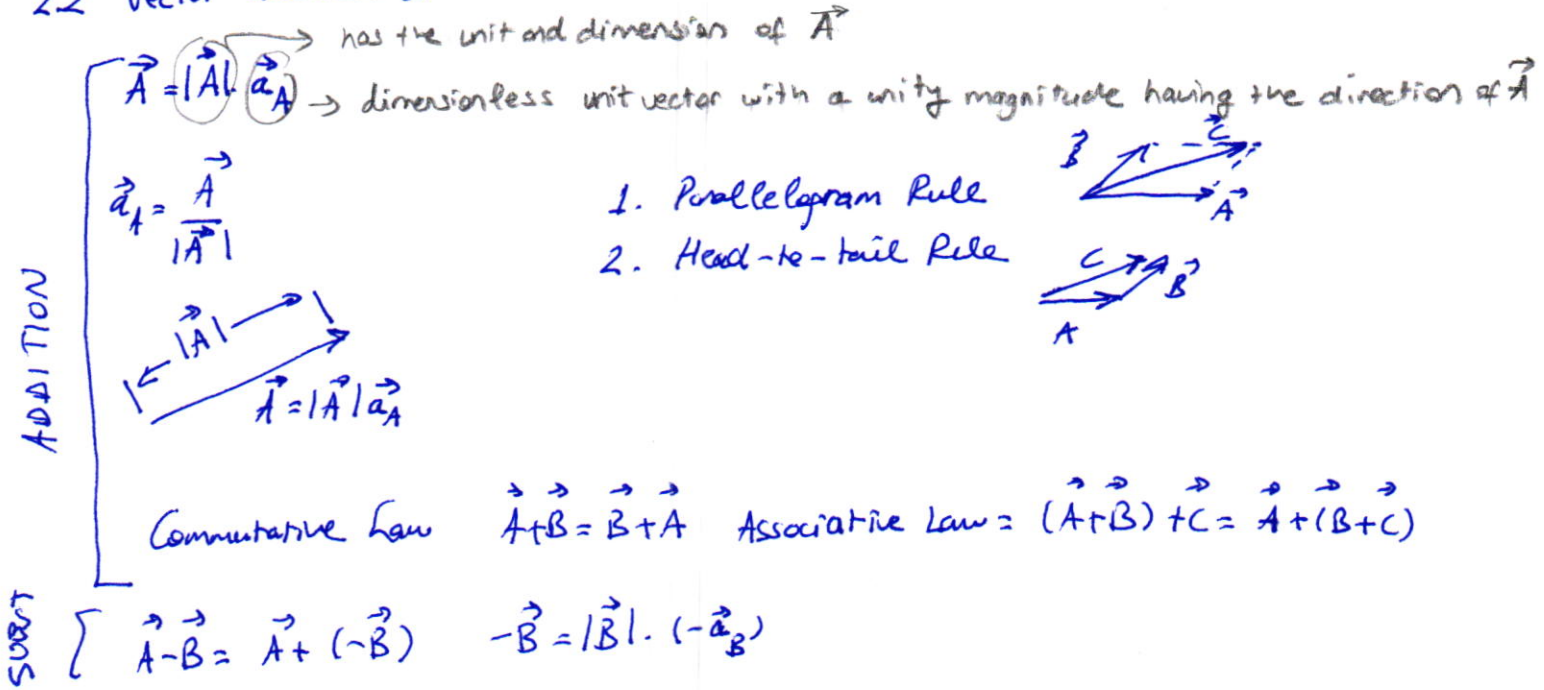 2.2 Vector
→ has the unit and dimension of A⃗
A⃗ = |A⃗|. a⃗_A → dimensionless unit vector with a unity magnitude having the direction of A⃗
a⃗_A = A⃗ / |A⃗|
1. Parallelogram Rule
B⃗ C⃗ A⃗
2. Head-to-tail Rule
C B⃗ A
ADDITION
|A⃗|
A⃗ = |A⃗| a⃗_A
Commutative Law A⃗+B⃗ = B⃗+A⃗ Associative Law = (A⃗+B⃗)+C⃗ = A⃗+(B⃗+C⃗)
A⃗-B⃗ = A⃗+(-B⃗) -B⃗ = |B⃗|. (-a⃗_B)